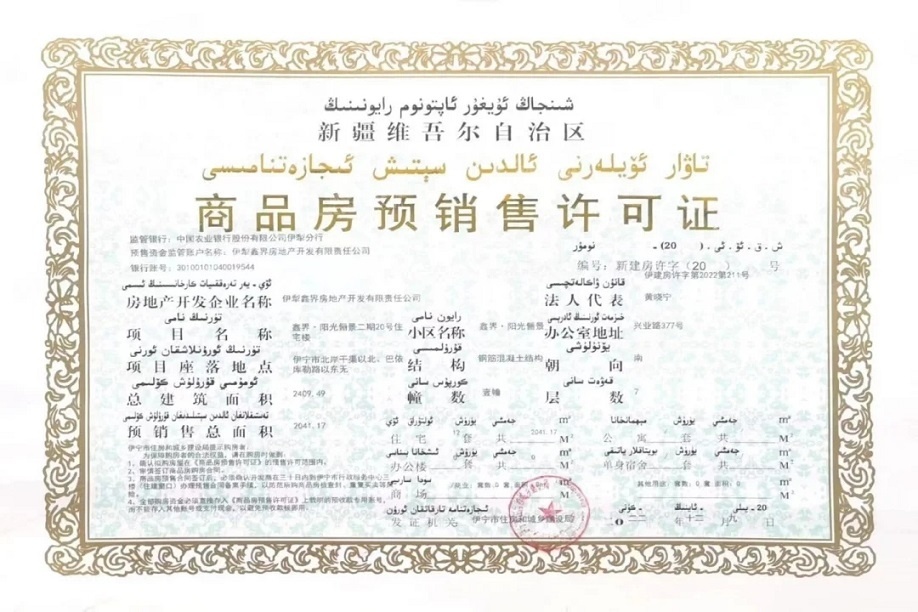 شىنجاڭ ئۇيغۇر ئاپتونوم رايونىنىڭ
新疆维吾尔自治区
تاۋار ئۆيلەرنى ئالدىن سېتىش ئىجازەتنامىسى
商品房预销售许可证
监管银行：中国农业银行股份有限公司伊犁分行
预售资金监管账户名称：伊犁鑫界房地产开发有限责任公司
银行账号：20100101040019544
ش . ق . ئۇ . ئى . (20 ) - نومۇر
编号：新建房许字（20 ） 号
伊建房许字第2022第211号
ئۆي - يەر تەرەققىيات كارخانىسىنىڭ ئىسمى
房地产开发企业名称 伊犁鑫界房地产开发有限责任公司
قانۇن ۋاكالەتچىسى
法人代表 黄晓宁
تۈرنىڭ نامى
项目名称 鑫界·阳光丽景二期20号住宅楼
رايون نامى
小区名称 鑫界·阳光丽景
خىزمەت ئورنىنىڭ ئادرېسى
办公室地址 兴业路377号
تۈرنىڭ ئورۇنلاشقان ئورنى
项目座落地点 伊宁市北岸干渠以北，巴依库勒路以东
قۇرۇلمىسى
结构 钢筋混凝土结构
يۈنۈلۈشى
朝向 南
ئومۇمىي قۇرۇلۇش كۆلىمى
总建筑面积 2409.49
كورپۇس سانى
幢数 壹幢
قەۋەت سانى
层数 7
预销售总面积 2041.17
ئولتۇراق ئۆي يۈرۈش جەمئىي m²
住宅 套共 2041.17 M²
مېھمانخانا يۈرۈش جەمئىي m²
公寓 套共 M²
ئىشخانا بىناسى يۈرۈش جەمئىي m²
办公楼 套共 0 M²
بويتاقلار ياتىقى يۈرۈش جەمئىي m²
单身宿舍 套共 M²
سودا سارىيى m²
商场 M²
伊宁市住房和城乡建设局提示购房者：
为保障购房者的合法权益，请在购房时做到：
1、确认拟购房屋在《商品房预售许可证》的预售许可范围内。
2、审慎签订商品房购房合同。
ئىجازەتنامە تارقاتقان ئورۇن
发证机关 伊宁市住房和城乡建设局
20 - يىلى - ئاينىڭ - كۈنى
二〇二二年十二月九日